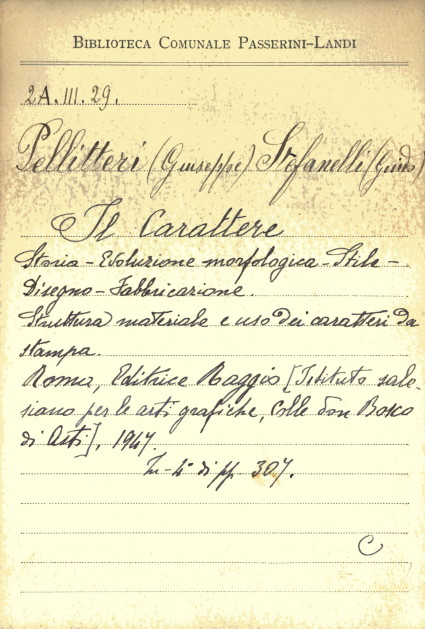 BIBLIOTECA COMUNALE PASSERINI-LANDI
2A.III.29.
Pellitteri (Giuseppe) Stefanelli (Guido)
Il Carattere
Storia - Evoluzione morfologica - Stile -
Disegno - Fabbricazione.
Struttura materiale e uso dei caratteri da
stampa.
Roma, Editrice Raggio [Istituto sale-
siano per le arti grafiche, Colle Don Bosco
di Asti], 1947.
In-4° di pp. 307.
C